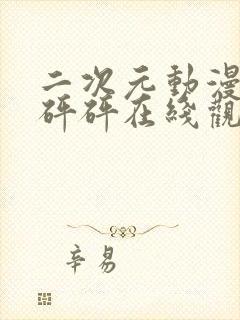 二次元動漫
砰砰在綫觀
辛易